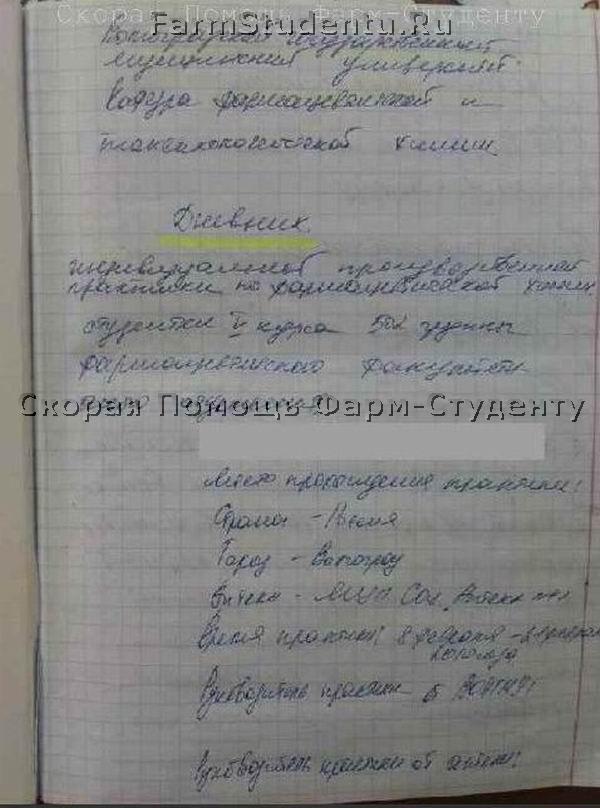 Скорая Помощь Фарм-Студенту
FarmStudentu.Ru
Волгоградский государственный
медицинский университет.
Кафедра фармацевтической и
токсикологической химии
Дневник.
индивидуальной производственной
практики по фармацевтической химии
студентки V курса 502 группы
фармацевтического факультета
Скорая Помощь Фарм-Студенту
Место прохождения практики:
Страна -
Город - Волгоград
Аптека - МУП. Аптека
Время практики: 8 февраля -
2010 года
Руководитель практики от
Руководитель практики от аптеки: